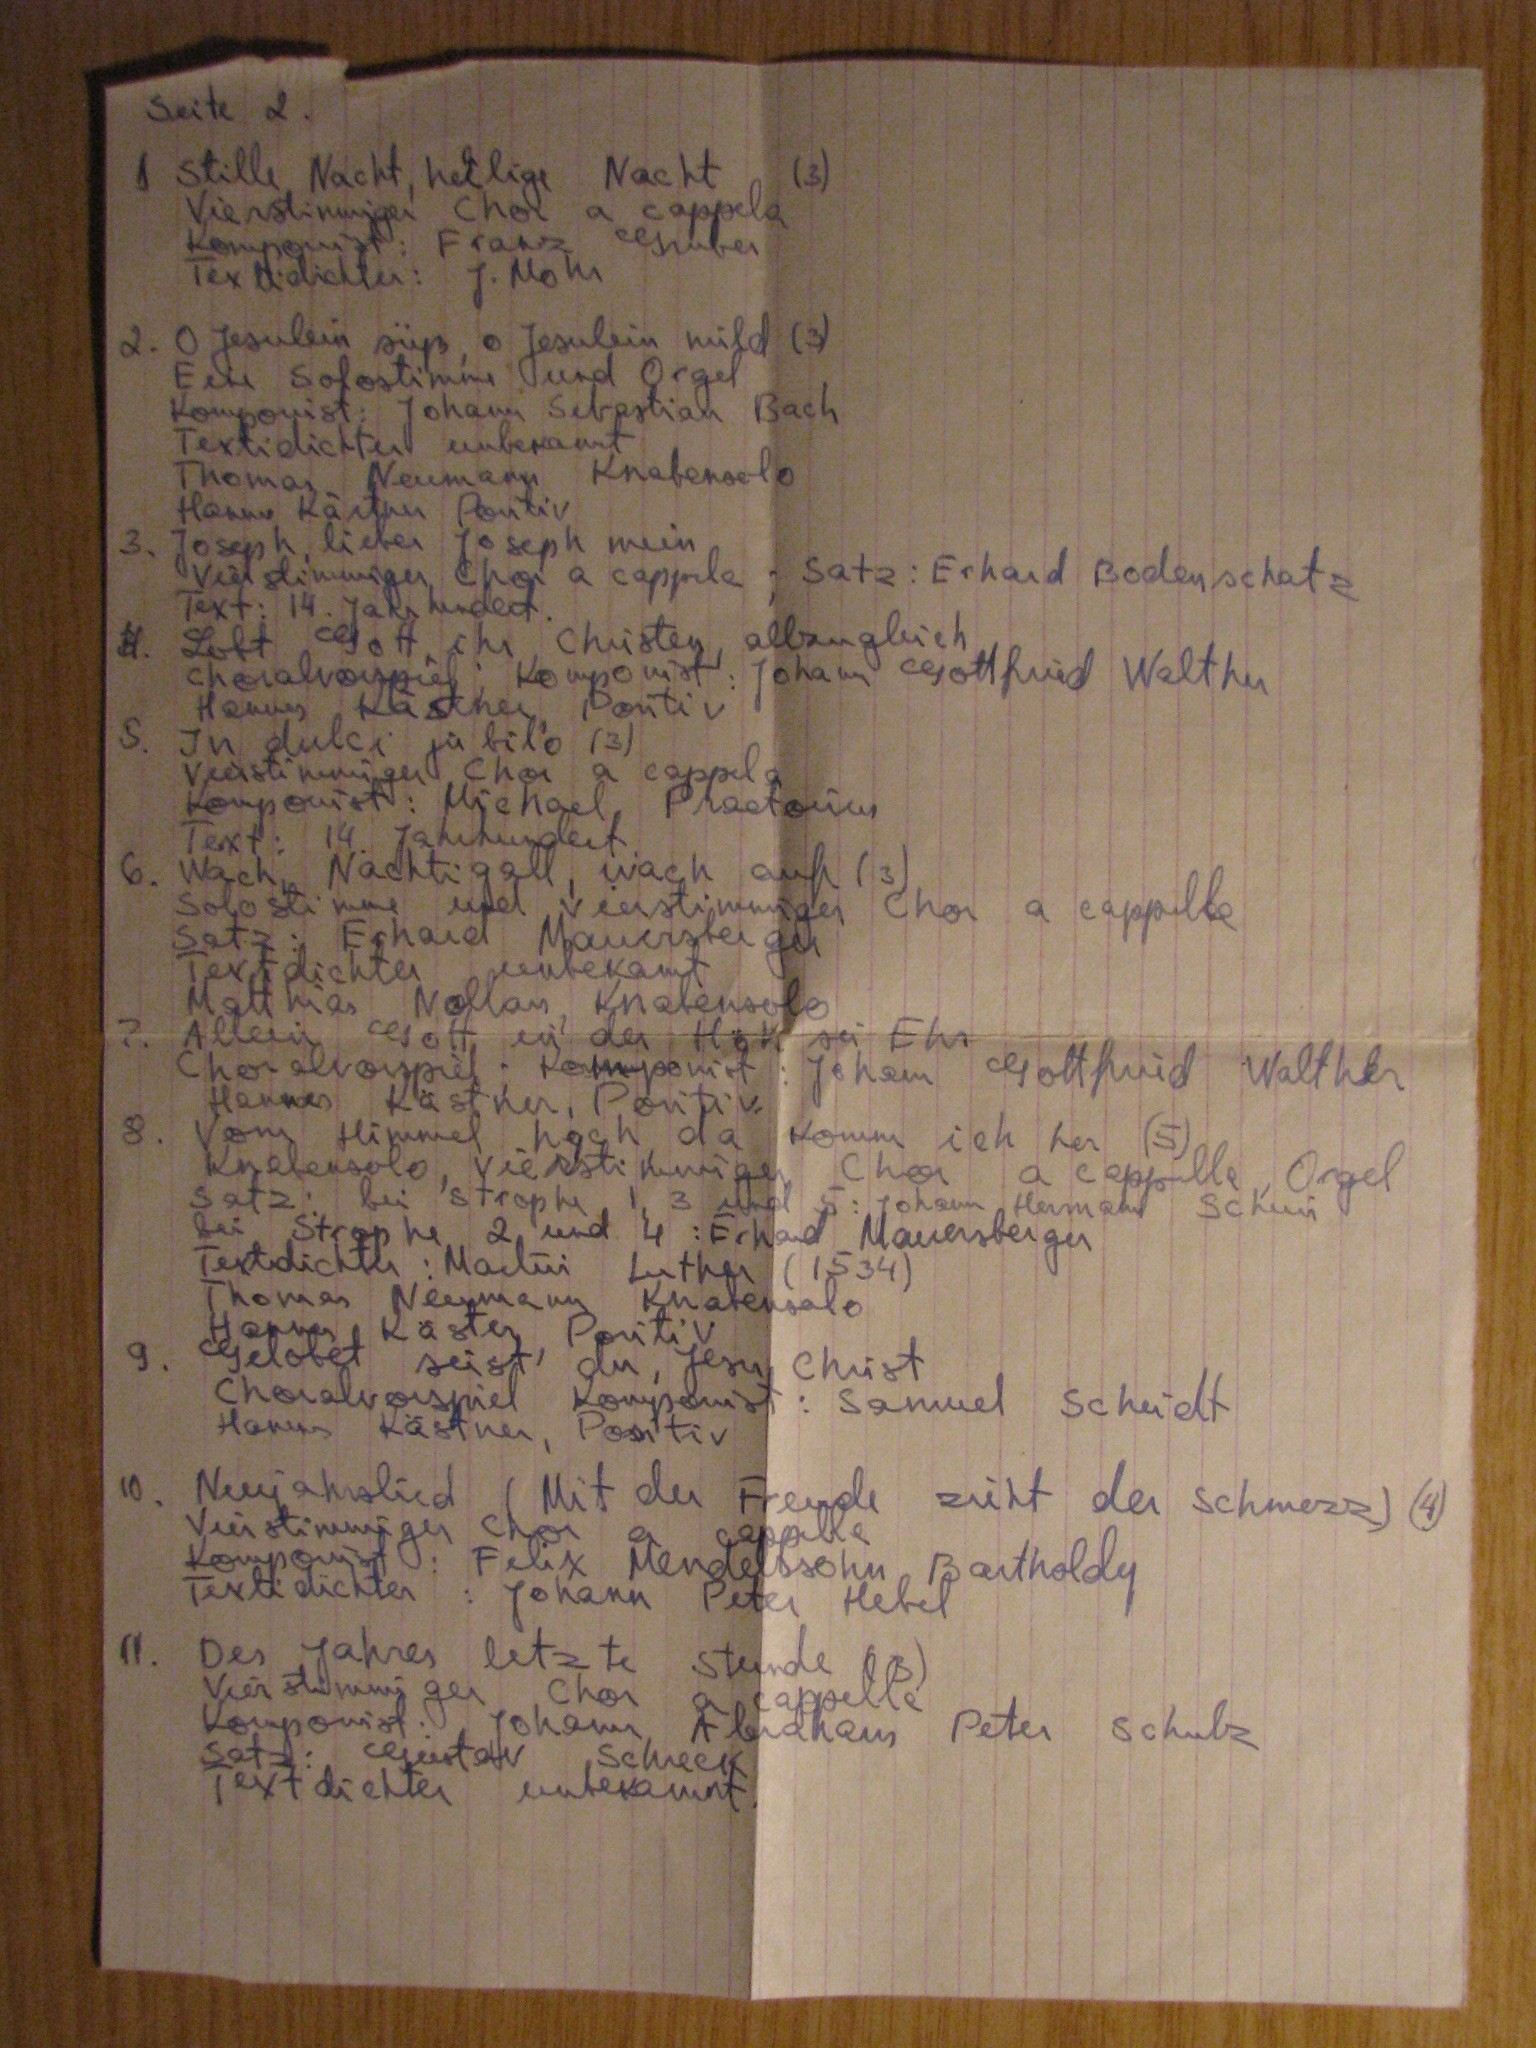 Seite 2.
1 Stille Nacht, heilige Nacht (3)
Vierstimmiger Chor a cappela
Komponist: Franz Gruber
Textidichter: J. Mohr
2. O Jesulein süß, o Jesulein mild (3)
Eine Solostimme und Orgel
Komponist: Johann Sebastian Bach
Textidichter unbekannt
Thomas Neumann Knabensolo
Hannes Kästner Positiv
3. Joseph, lieber Joseph mein
Vierstimmiger Chor a cappela ; Satz: Erhard Bodenschatz
Text: 14. Jahrhundert.
4. Lobt Gott ihr Christen, allzugleich
Choralvorspiel; Komponist: Johann Gottfried Walther
Hannes Kästner, Positiv
5. In dulci jubilo (3)
Vierstimmiger Chor a cappela
Komponist: Michael Praetorius
Text: 14. Jahrhundert
6. Wach, Nachtigall, wach auf (3)
Solostimme und vierstimmiger Chor a cappella
Satz: Erhard Mauersberger
Textdichter unbekannt
Matthias Nollau, Knabensolo
7. Allein Gott in der Höh sei Ehr
Choralvorspiel · Komponist: Johann Gottfried Walther
Hannes Kästner, Positiv.
8. Vom Himmel hoch da komm ich her (5)
Knabensolo, vierstimmiger Chor a cappella, Orgel
Satz: bei Strophe 1, 3 und 5: Johann Hermann Schein
bei Strophe 2 und 4: Erhard Mauersberger
Textdichter: Martin Luther (1534)
Thomas Neumann Knabensolo
Hannes Käster, Positiv
9. Gelobet seist du, Jesu Christ
Choralvorspiel Komponist: Samuel Scheidt
Hannes Kästner, Positiv
10. Neujahrslied (Mit der Freude zieht der Schmerz) (4)
Vierstimmiger Chor a cappella
Komponist: Felix Mendelssohn Bartholdy
Textidichter: Johann Peter Hebel
11. Des Jahres letzte Stunde (3)
Vierstimmiger Chor a cappella
Komponist: Johann Abraham Peter Schulz
Satz: Gustav Schreck
Textdichter unbekannt.